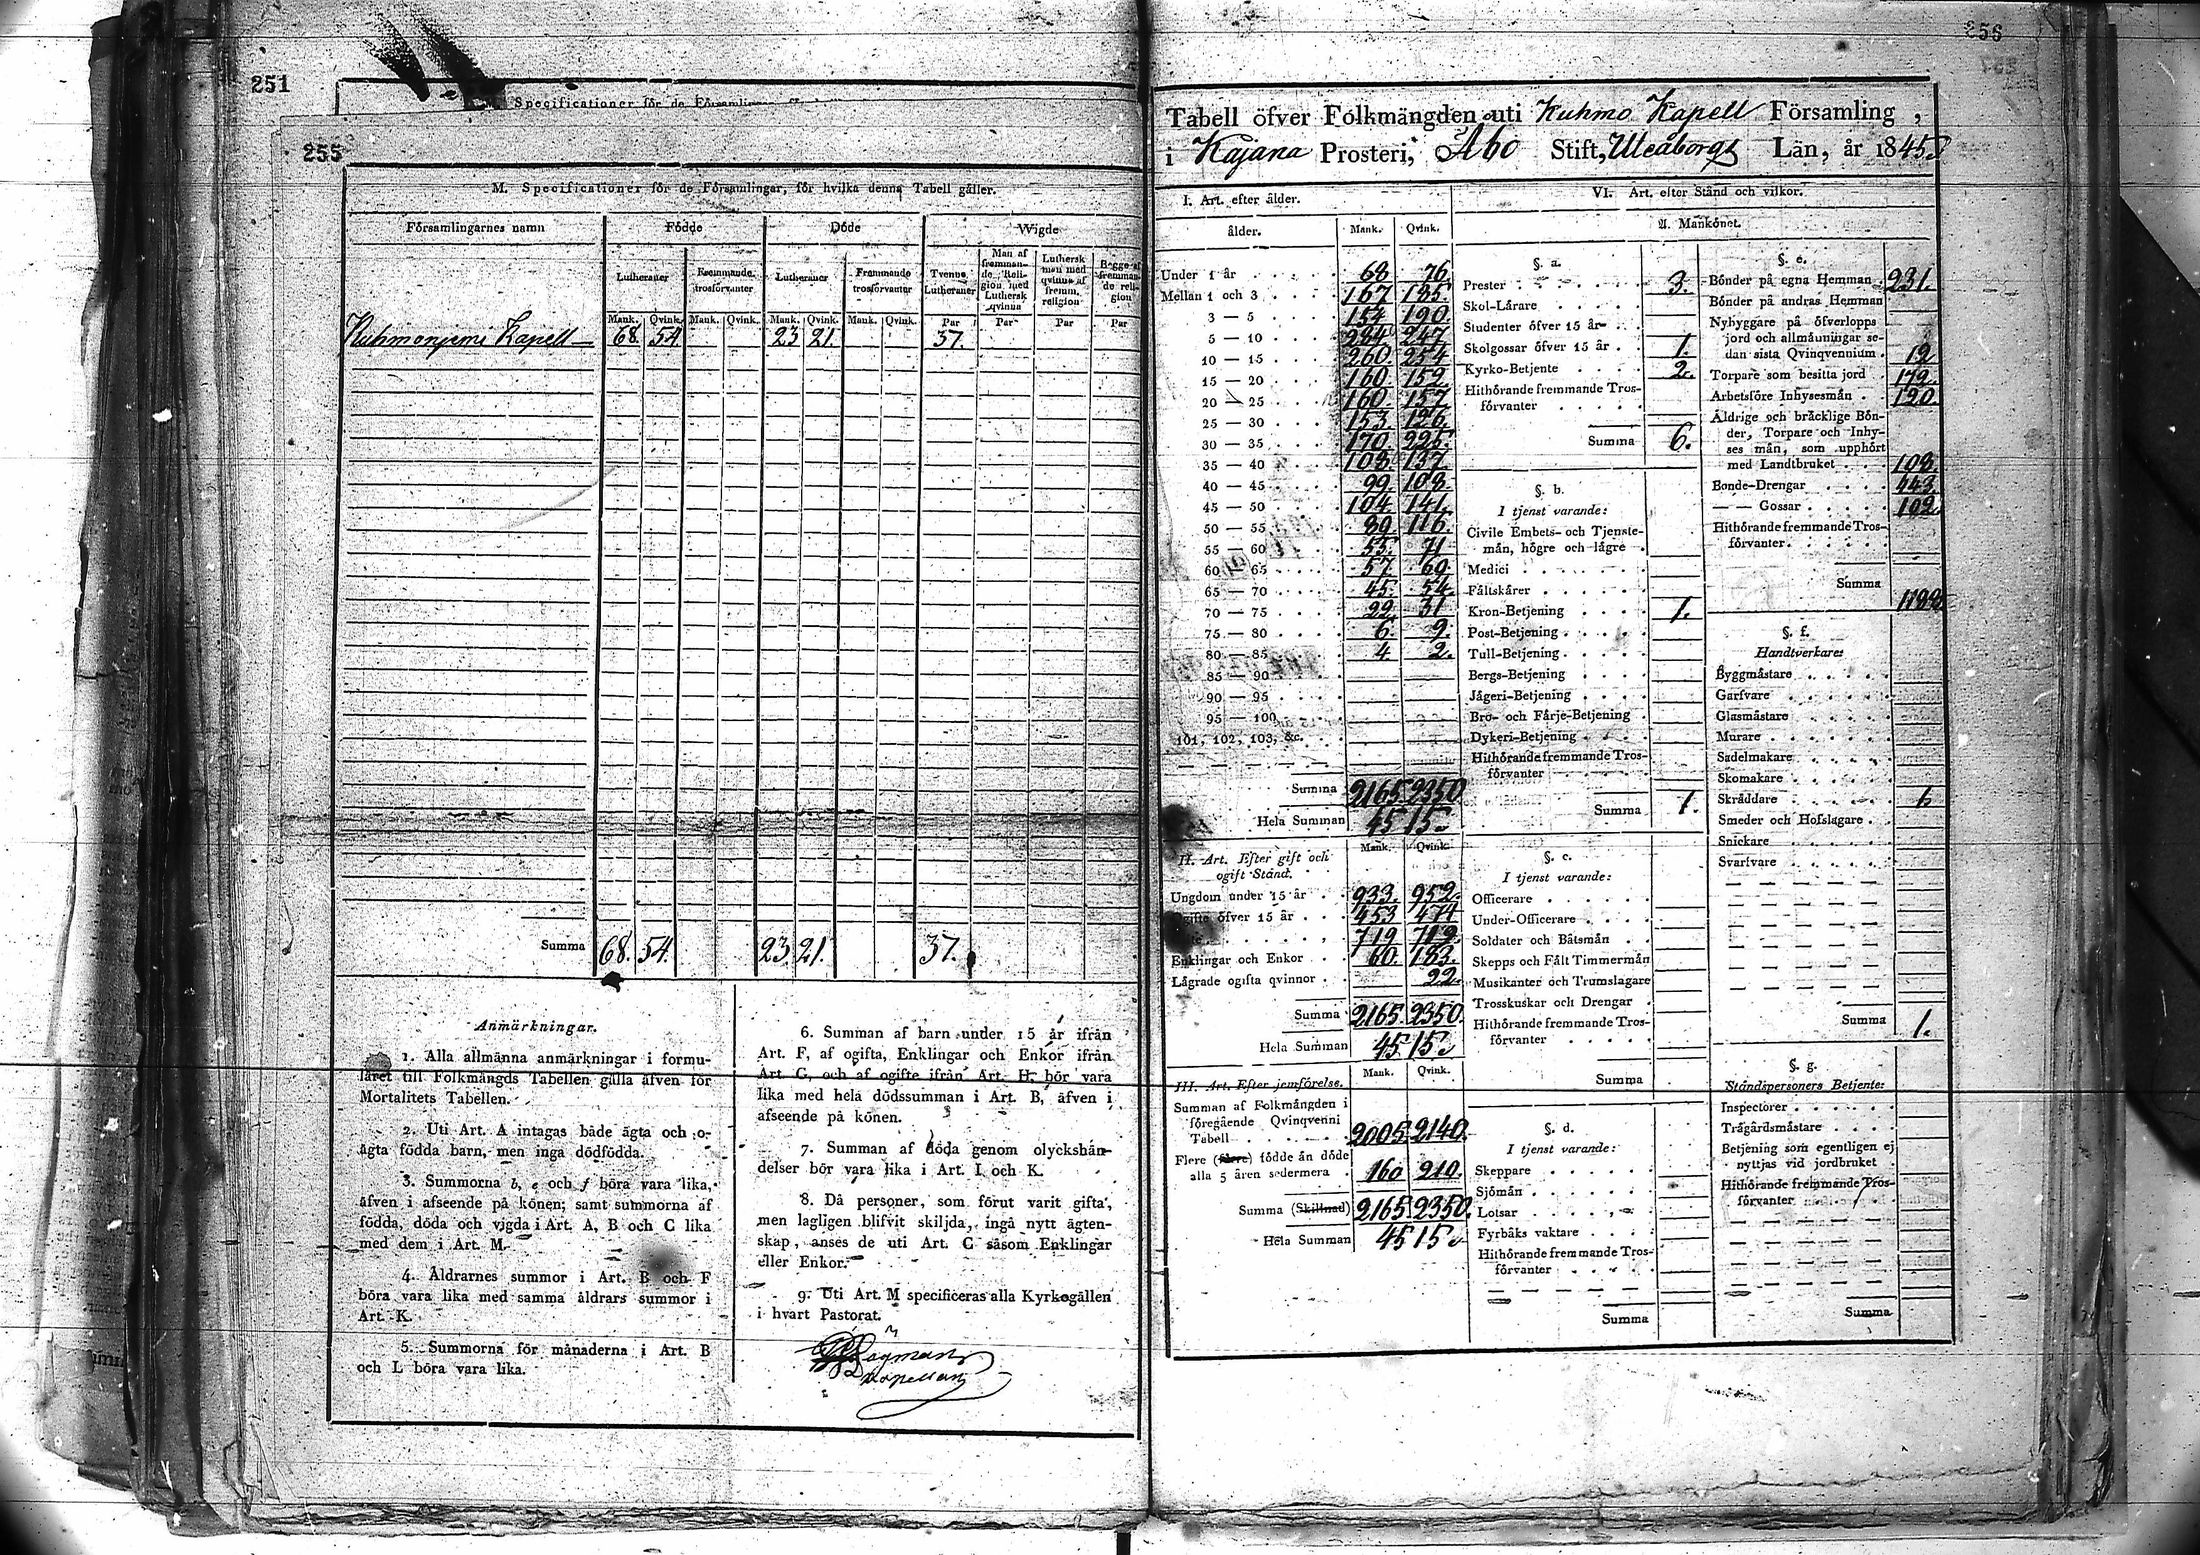 251
255
M. Specificationer för de Församlingar, för hvilka denna Tabell gäller.
Församlingarnes namn
Födde
Döde
Wigde
Lutheraner
Fremmande trosförvanter
Lutheraner
Fremmande trosförvanter
Tvenne Lutheraner
Man af fremmande Religion med Luthersk qvinna
Luthersk man med qvinna af fremm. religion
Bägge af fremmande religion
Mank. Qvink. Mank. Qvink. Mank. Qvink. Mank. Qvink. Par Par Par Par
Kuhmoniemi Kapell 68. 54 23 21. 37.
Summa 68. 54. 23. 21. 37.
Anmärkningar.
1. Alla allmänna anmärkningar i formu-
läret till Folkmängds Tabellen gälla äfven för
Mortalitets Tabellen.
2. Uti Art. A intagas både ägta och o-
ägta födda barn, men inga dödfödda.
3. Summorna b, e och f böra vara lika,
äfven i afseende på könen; samt summorna af
födda, döda och vigda i Art. A, B och C lika
med dem i Art. M.
4. Åldrarnes summor i Art. B och F
böra vara lika med samma åldrars summor i
Art. K.
5. Summorna för månaderna i Art. B
och L böra vara lika.
6. Summan af barn under 15 år ifrån
Art. F, af ogifta, Enklingar och Enkor ifrån
Art. G, och af ogifte ifrån Art. H, bör vara
lika med hela dödssumman i Art. B, äfven i
afseende på könen.
7. Summan af döda genom olyckshän-
delser bör vara lika i Art. I och K.
8. Då personer, som förut varit gifta,
men lagligen blifvit skiljda, ingå nytt ägten-
skap, anses de uti Art. C såsom Enklingar
eller Enkor.
9. Uti Art. M specificeras alla Kyrkogällen
i hvart Pastorat.
Kapellan
256
Tabell öfver Folkmängden uti Kuhmo Kapell Församling,
i Kajana Prosteri, Åbo Stift, Uleåborgs Län, år 1845.
I. Art. efter ålder.
ålder. Mank. Qvink.
Under 1 år 68 76.
Mellan 1 och 3 167 185.
3 — 5 154 190.
5 — 10 284 247.
10 — 15 260 254
15 — 20 160. 152.
20 — 25 160. 157
25 — 30 153. 126.
30 — 35 170. 225.
35 — 40 108. 137.
40 — 45 99. 108.
45 — 50 104. 141.
50 — 55 89. 116.
55 — 60 55. 71
60 — 65 57. 69.
65 — 70 45. 54.
70 — 75 22. 31
75 — 80 6. 9.
80 — 85 4. 2.
85 — 90
90 — 95
95 — 100
101, 102, 103, &c.
Summa 2165. 2350.
Hela Summan 4515.
II. Art. Efter gift och
ogift Stånd. Mank. Qvink.
Ungdom under 15 år 933. 952.
Ogifte öfver 15 år 453 474
719 719.
Enklingar och Enkor 60. 183.
Lägrade ogifta qvinnor 22.
Summa 2165. 2350.
Hela Summan 4515.
III. Art. Efter jemförelse. Mank. Qvink.
Summan af Folkmängden i
föregående Qvinqvenni
Tabell 2005. 2140.
Flere (färre) födde än döde
alla 5 åren sedermera 160 210.
Summa (Skillnad) 2165. 2350.
Hela Summan 4515.
VI. Art. efter Stånd och vilkor.
A. Mankönet.
§. a.
Prester 3.
Skol-Lärare
Studenter öfver 15 år
Skolgossar öfver 15 år 1.
Kyrko-Betjente 2.
Hithörande fremmande Tros-
förvanter
Summa 6.
§. b.
I tjenst varande:
Civile Embets- och Tjenste-
män, högre och lägre
Medici
Fältskärer
Kron-Betjening 1.
Post-Betjening
Tull-Betjening
Bergs-Betjening
Jägeri-Betjening
Bro- och Färje-Betjening
Dykeri-Betjening
Hithörande fremmande Tros-
förvanter
Summa 1.
§. c.
I tjenst varande:
Officerare
Under-Officerare
Soldater och Båtsmän
Skepps och Fält Timmermän
Musikanter och Trumslagare
Trosskuskar och Drengar
Hithörande fremmande Tros-
förvanter
Summa
§. d.
I tjenst varande:
Skeppare
Sjömän
Lotsar
Fyrbåks vaktare
Hithörande fremmande Tros-
förvanter
Summa
§. e.
Bönder på egna Hemman 231.
Bönder på andras Hemman
Nybyggare på öfverlopps
jord och allmänningar se-
dan sista Qvinqvennium 12
Torpare som besitta jord 172.
Arbetsföre Inhysesmän 120.
Åldrige och bräcklige Bön-
der, Torpare och Inhy-
ses män, som upphört
med Landtbruket 108.
Bonde-Drengar 443.
— — Gossar 102.
Hithörande fremmande Tros-
förvanter
Summa
§. f.
Handtverkare:
Byggmästare
Garfvare
Glasmästare
Murare
Sadelmakare
Skomakare
Skräddare
Smeder och Hofslagare
Snickare
Svarfvare
Summa 1.
§. g.
Ståndspersoners Betjente:
Inspectorer
Trägårdsmästare
Betjening som egentligen ej
nyttjas vid jordbruket
Hithörande fremmande Tros-
förvanter
Summa